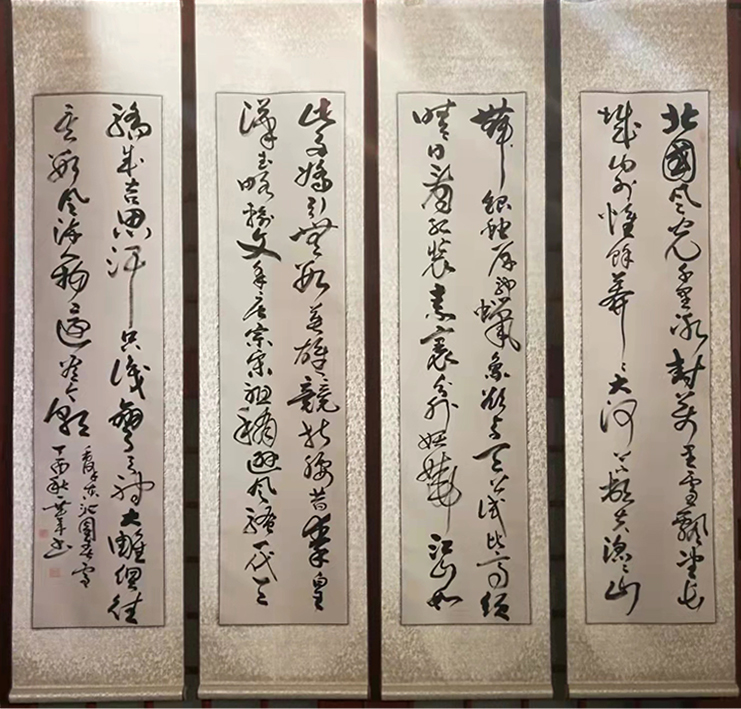 北國风光千里冰封万里雪飘望长
城内外惟馀莽〻大河上下顿失滔〻山
舞银蛇原驰蠟象欲与天公试比高须
晴日看红装素裹分外妖娆江山如
此多娇引无数英雄競折腰昔秦皇
漢武略输文采唐宗宋祖稍逊风骚一代天
骄成吉思汗只识弯弓射大雕俱往
矣数风流人物还看今朝
毛泽东沁園春雪
丁酉秋书